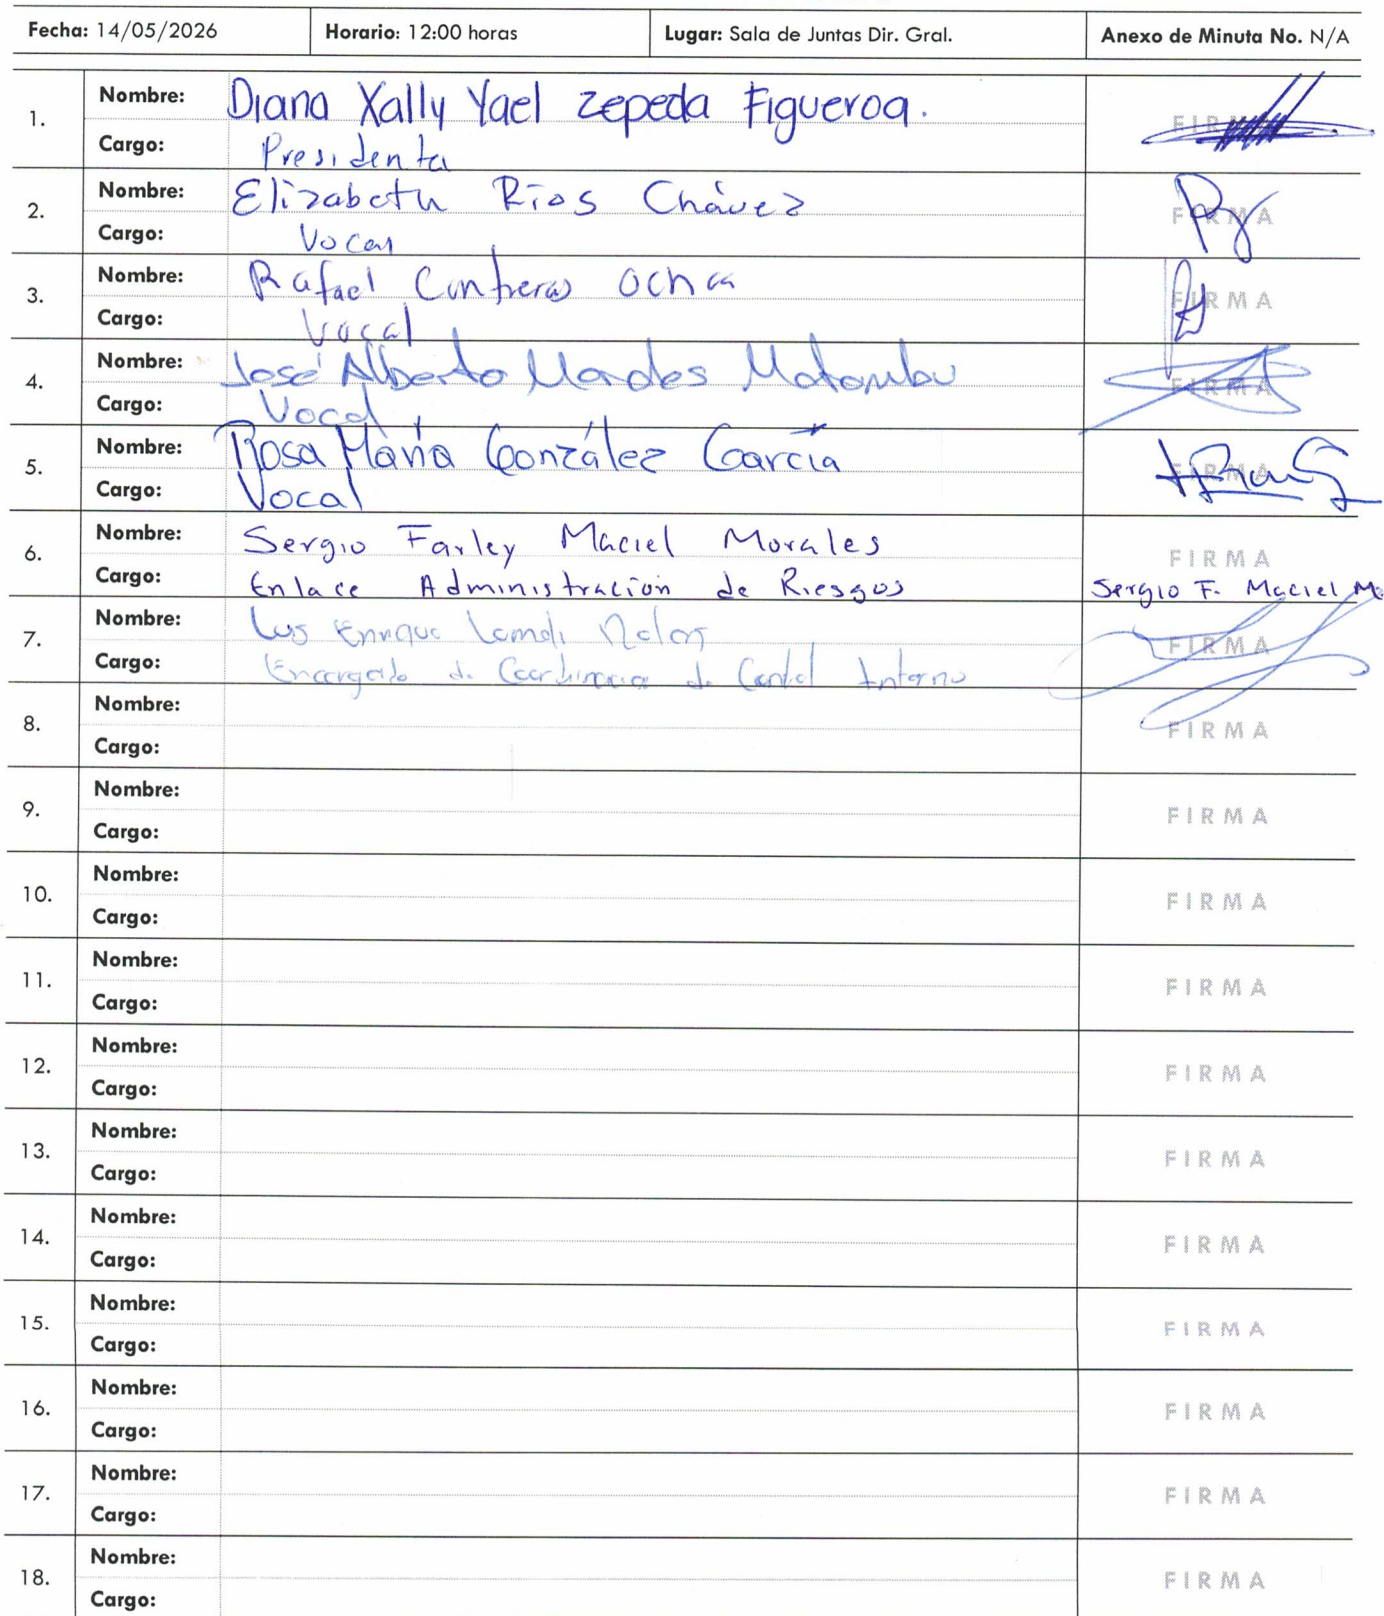 Fecha: 14/05/2026 Horario: 12:00 horas Lugar: Sala de Juntas Dir. Gral. Anexo de Minuta No. N/A
1. Nombre: Diana Xally Yael Zepeda Figueroa. FIRMA
Cargo: Presidenta
2. Nombre: Elizabeth Ríos Chávez FIRMA
Cargo: Vocal
3. Nombre: Rafael Contreras Ochoa FIRMA
Cargo: Vocal
4. Nombre: José Alberto FIRMA
Cargo: Vocal
5. Nombre: Rosa María González García FIRMA
Cargo: Vocal
6. Nombre: Sergio Farley Maciel Morales FIRMA
Cargo: Enlace Administración de Riesgos Sergio F. Maciel M.
7. Nombre: Luis Enrique FIRMA
Cargo: Encargado de Coordinación de Control Interno
8. Nombre: FIRMA
Cargo:
9. Nombre: FIRMA
Cargo:
10. Nombre: FIRMA
Cargo:
11. Nombre: FIRMA
Cargo:
12. Nombre: FIRMA
Cargo:
13. Nombre: FIRMA
Cargo:
14. Nombre: FIRMA
Cargo:
15. Nombre: FIRMA
Cargo:
16. Nombre: FIRMA
Cargo:
17. Nombre: FIRMA
Cargo:
18. Nombre: FIRMA
Cargo: